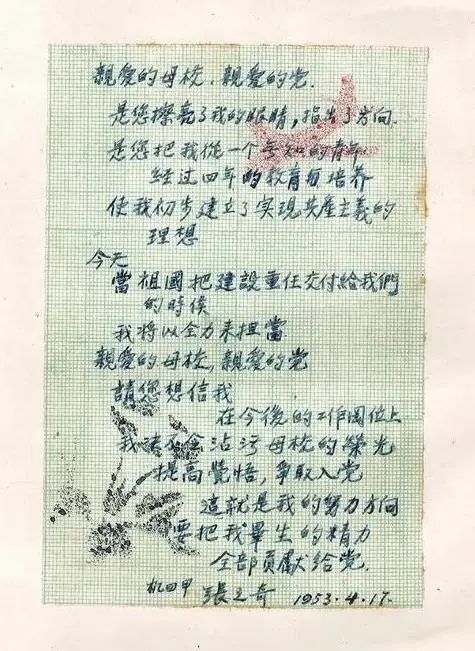 親愛的母校.親愛的党.
是您擦亮了我的眼睛,指出了方向.
是您把我從一个无知的青年
经过四年的教育与培养
使我初步建立了实現共產主義的
理想
今天
當祖國把建設重任交付給我們
的時侯
我将以全力来担當
親愛的母校,親愛的党
請您想信我
在今後的工作崗位上
我决不会沾污母校的榮光
提高覺悟,爭取入党
這就是我的努力方向
要把我畢生的精力
全部貢獻給党.
机四甲 張之奇 1953.4.17.